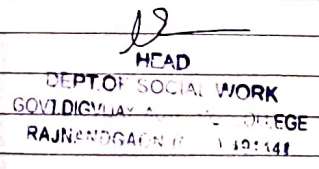 HEAD
DEPT.OF SOCIAL WORK
GOVT.DIGVIJAY COLLEGE
RAJNANDGAON